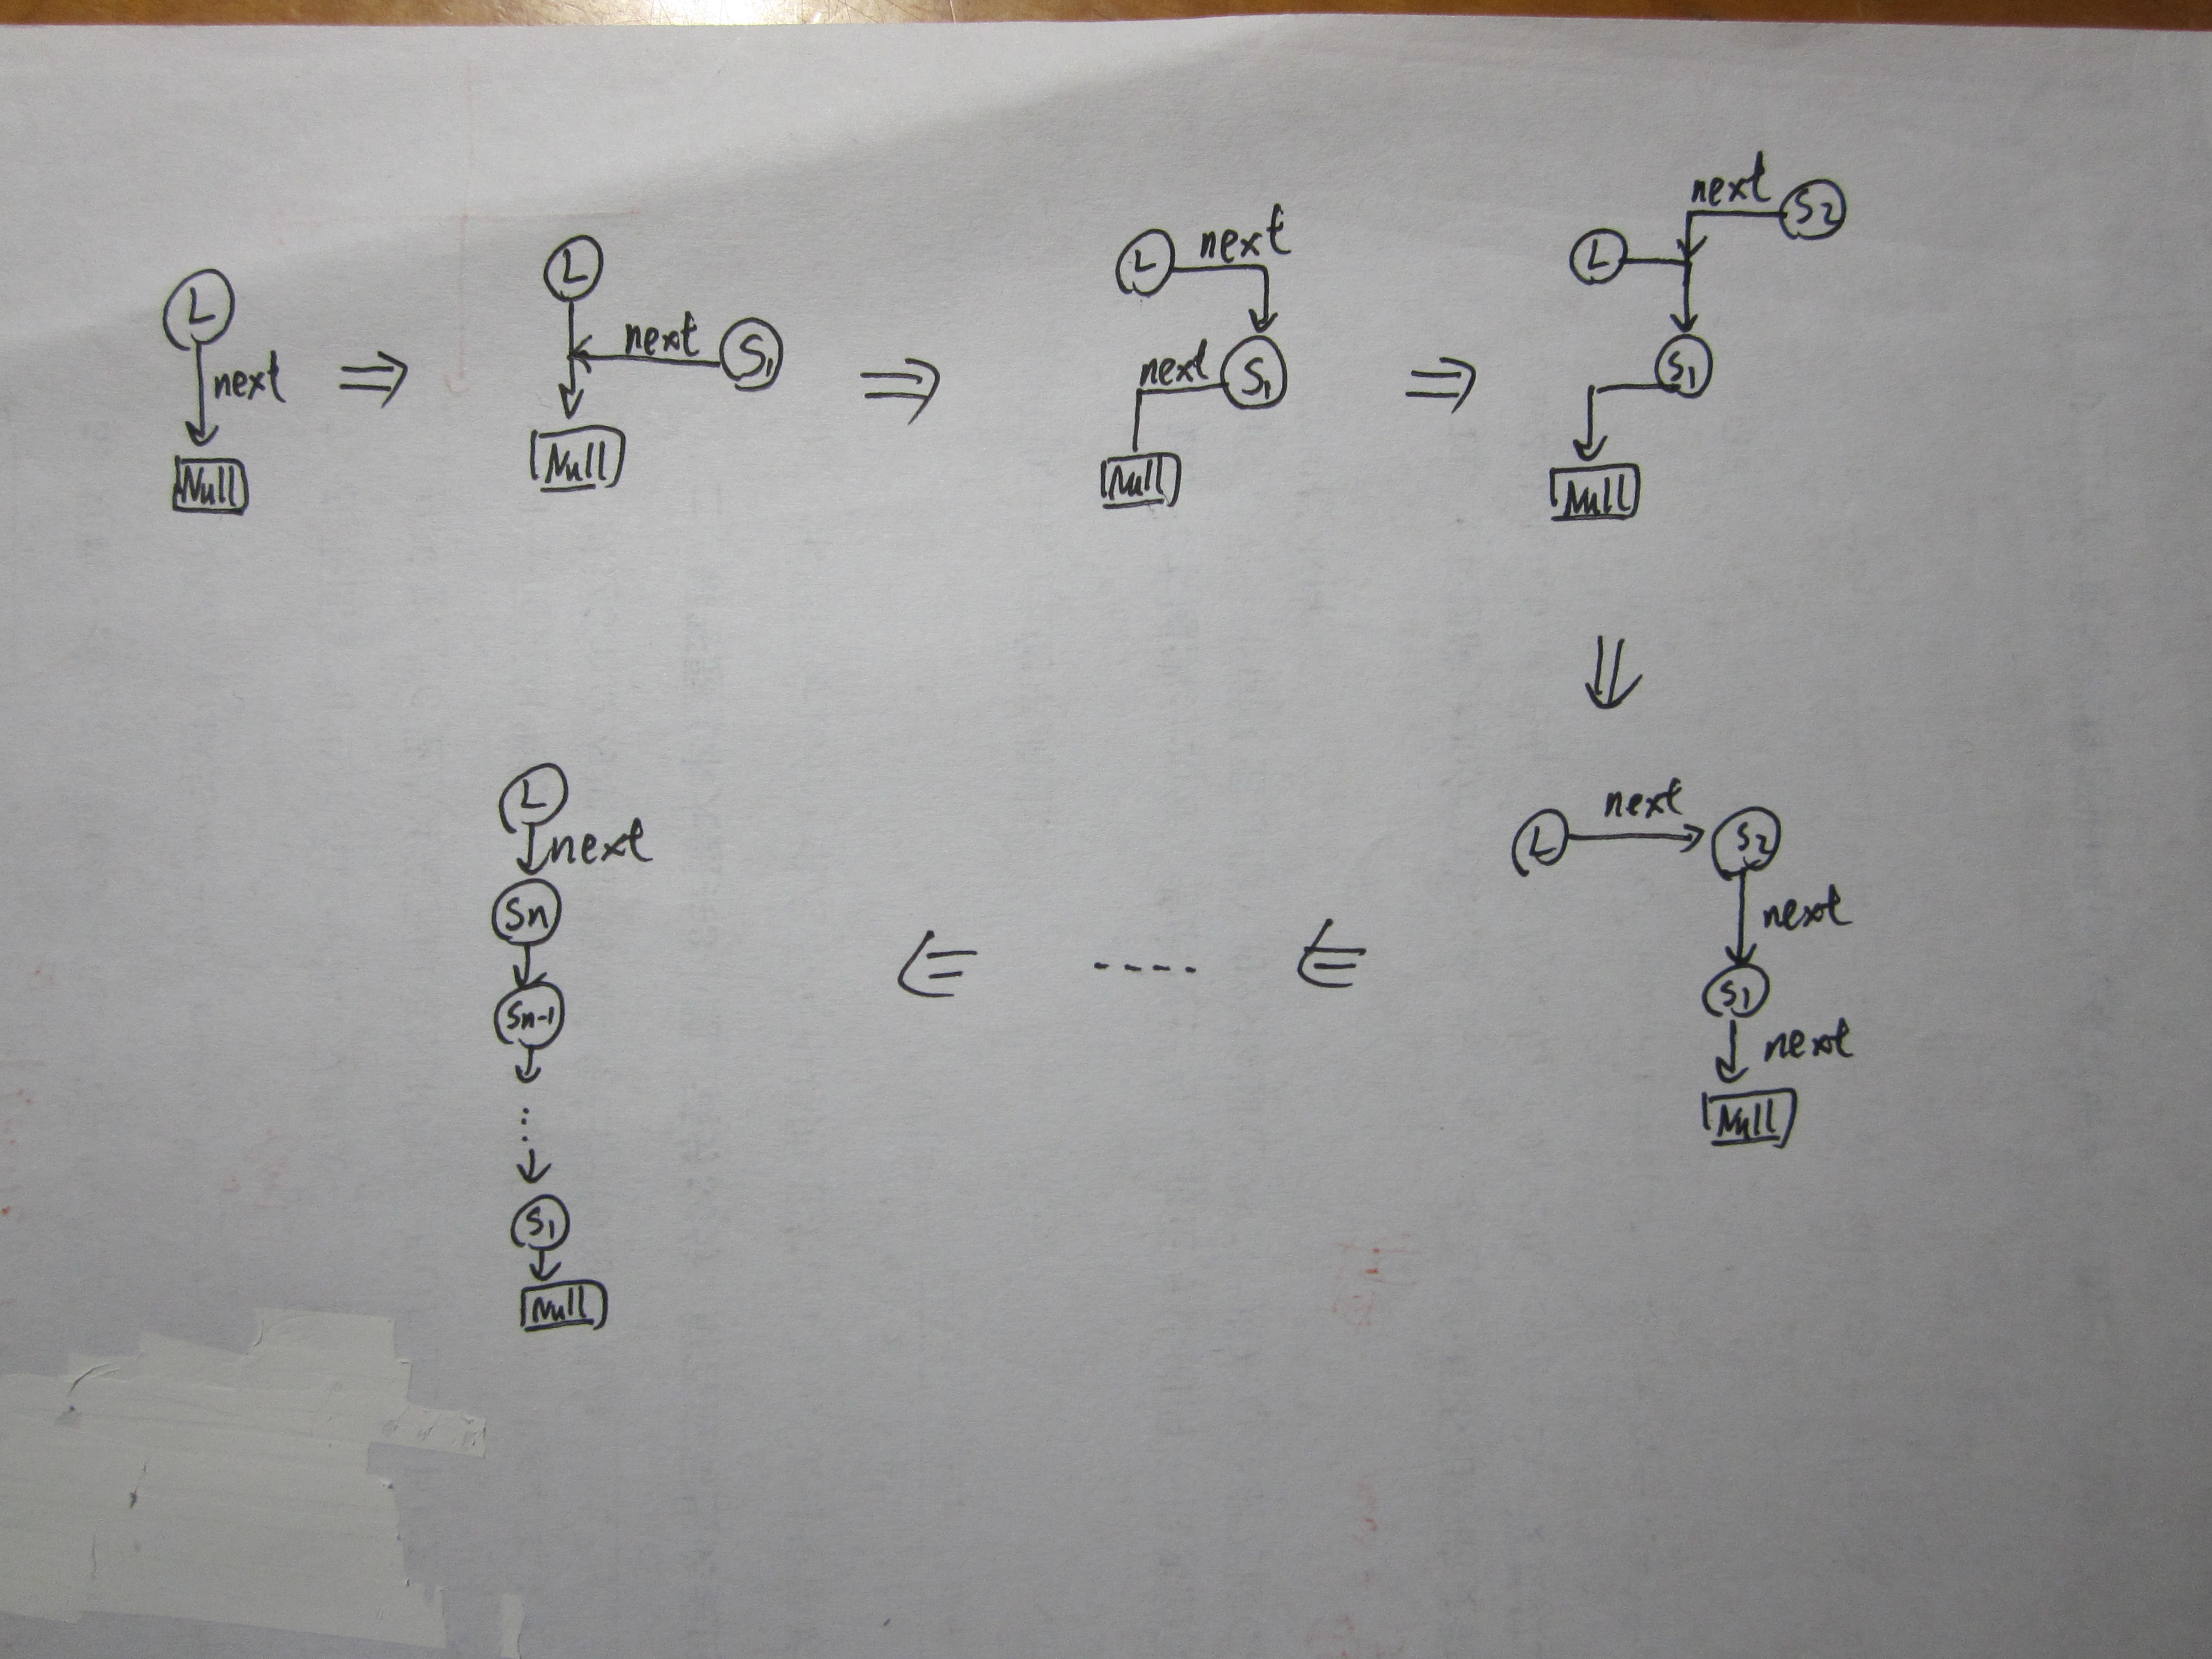 L
next
Null
⇒
L
next S1
Null
⇒
L next
next S1
Null
⇒
next S2
L
S1
Null
⇓
L next S2
next
S1
next
Null
⇐
----
⇐
L
next
Sn
Sn-1
...
S1
Null